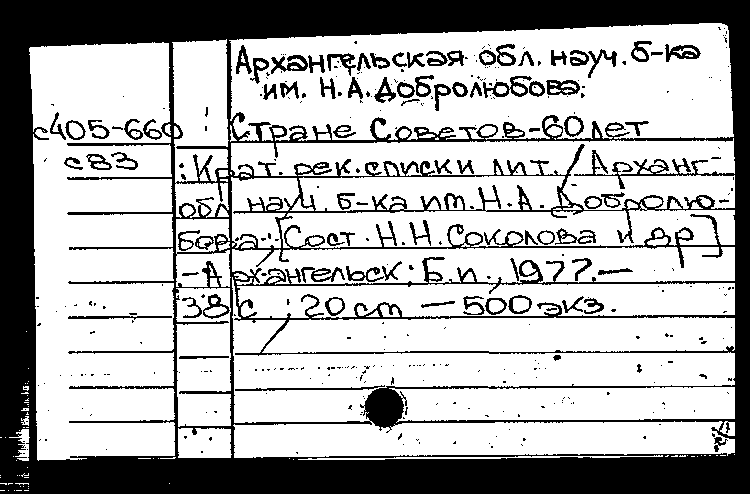 Архангельская обл. науч. б-ка
им. Н.А. Добролюбова.
с405-660 Стране Советов-60 лет
с83 : Крат. рек. списки лит. / Арханг.
обл науч. б-ка им. Н.А. Добролю-
бова; [Сост. Н.Н. Соколова и др]
.-Архангельск: Б.и., 1977.—
38 с ; 20 cm — 500 экз.